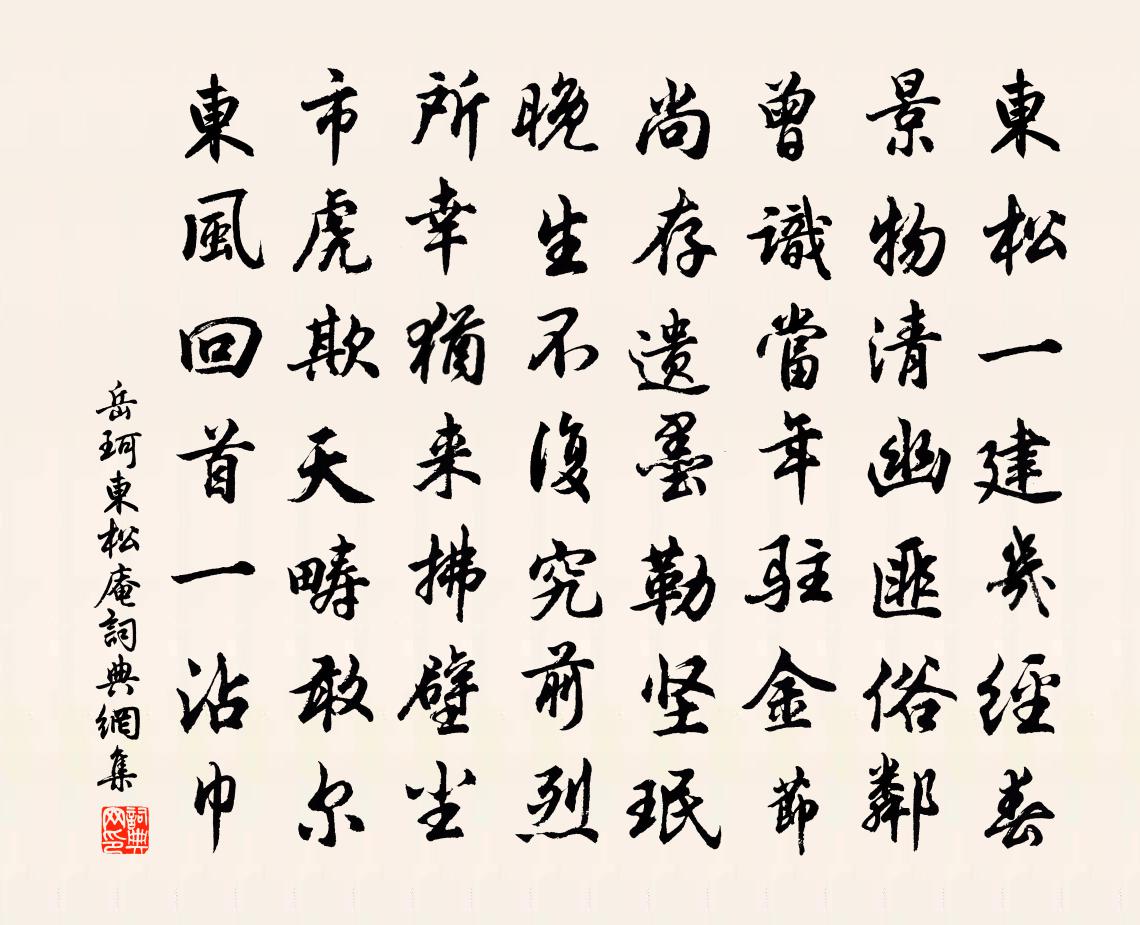 東松一建幾經春
景物清幽匪俗鄰
曾識當年駐金節
尚存遺墨勒堅珉
晚生不復究前烈
所幸猶来拂壁尘
市虎欺天疇敢尔
東風回首一沾巾
岳珂東松庵詞典網集
詞典网印